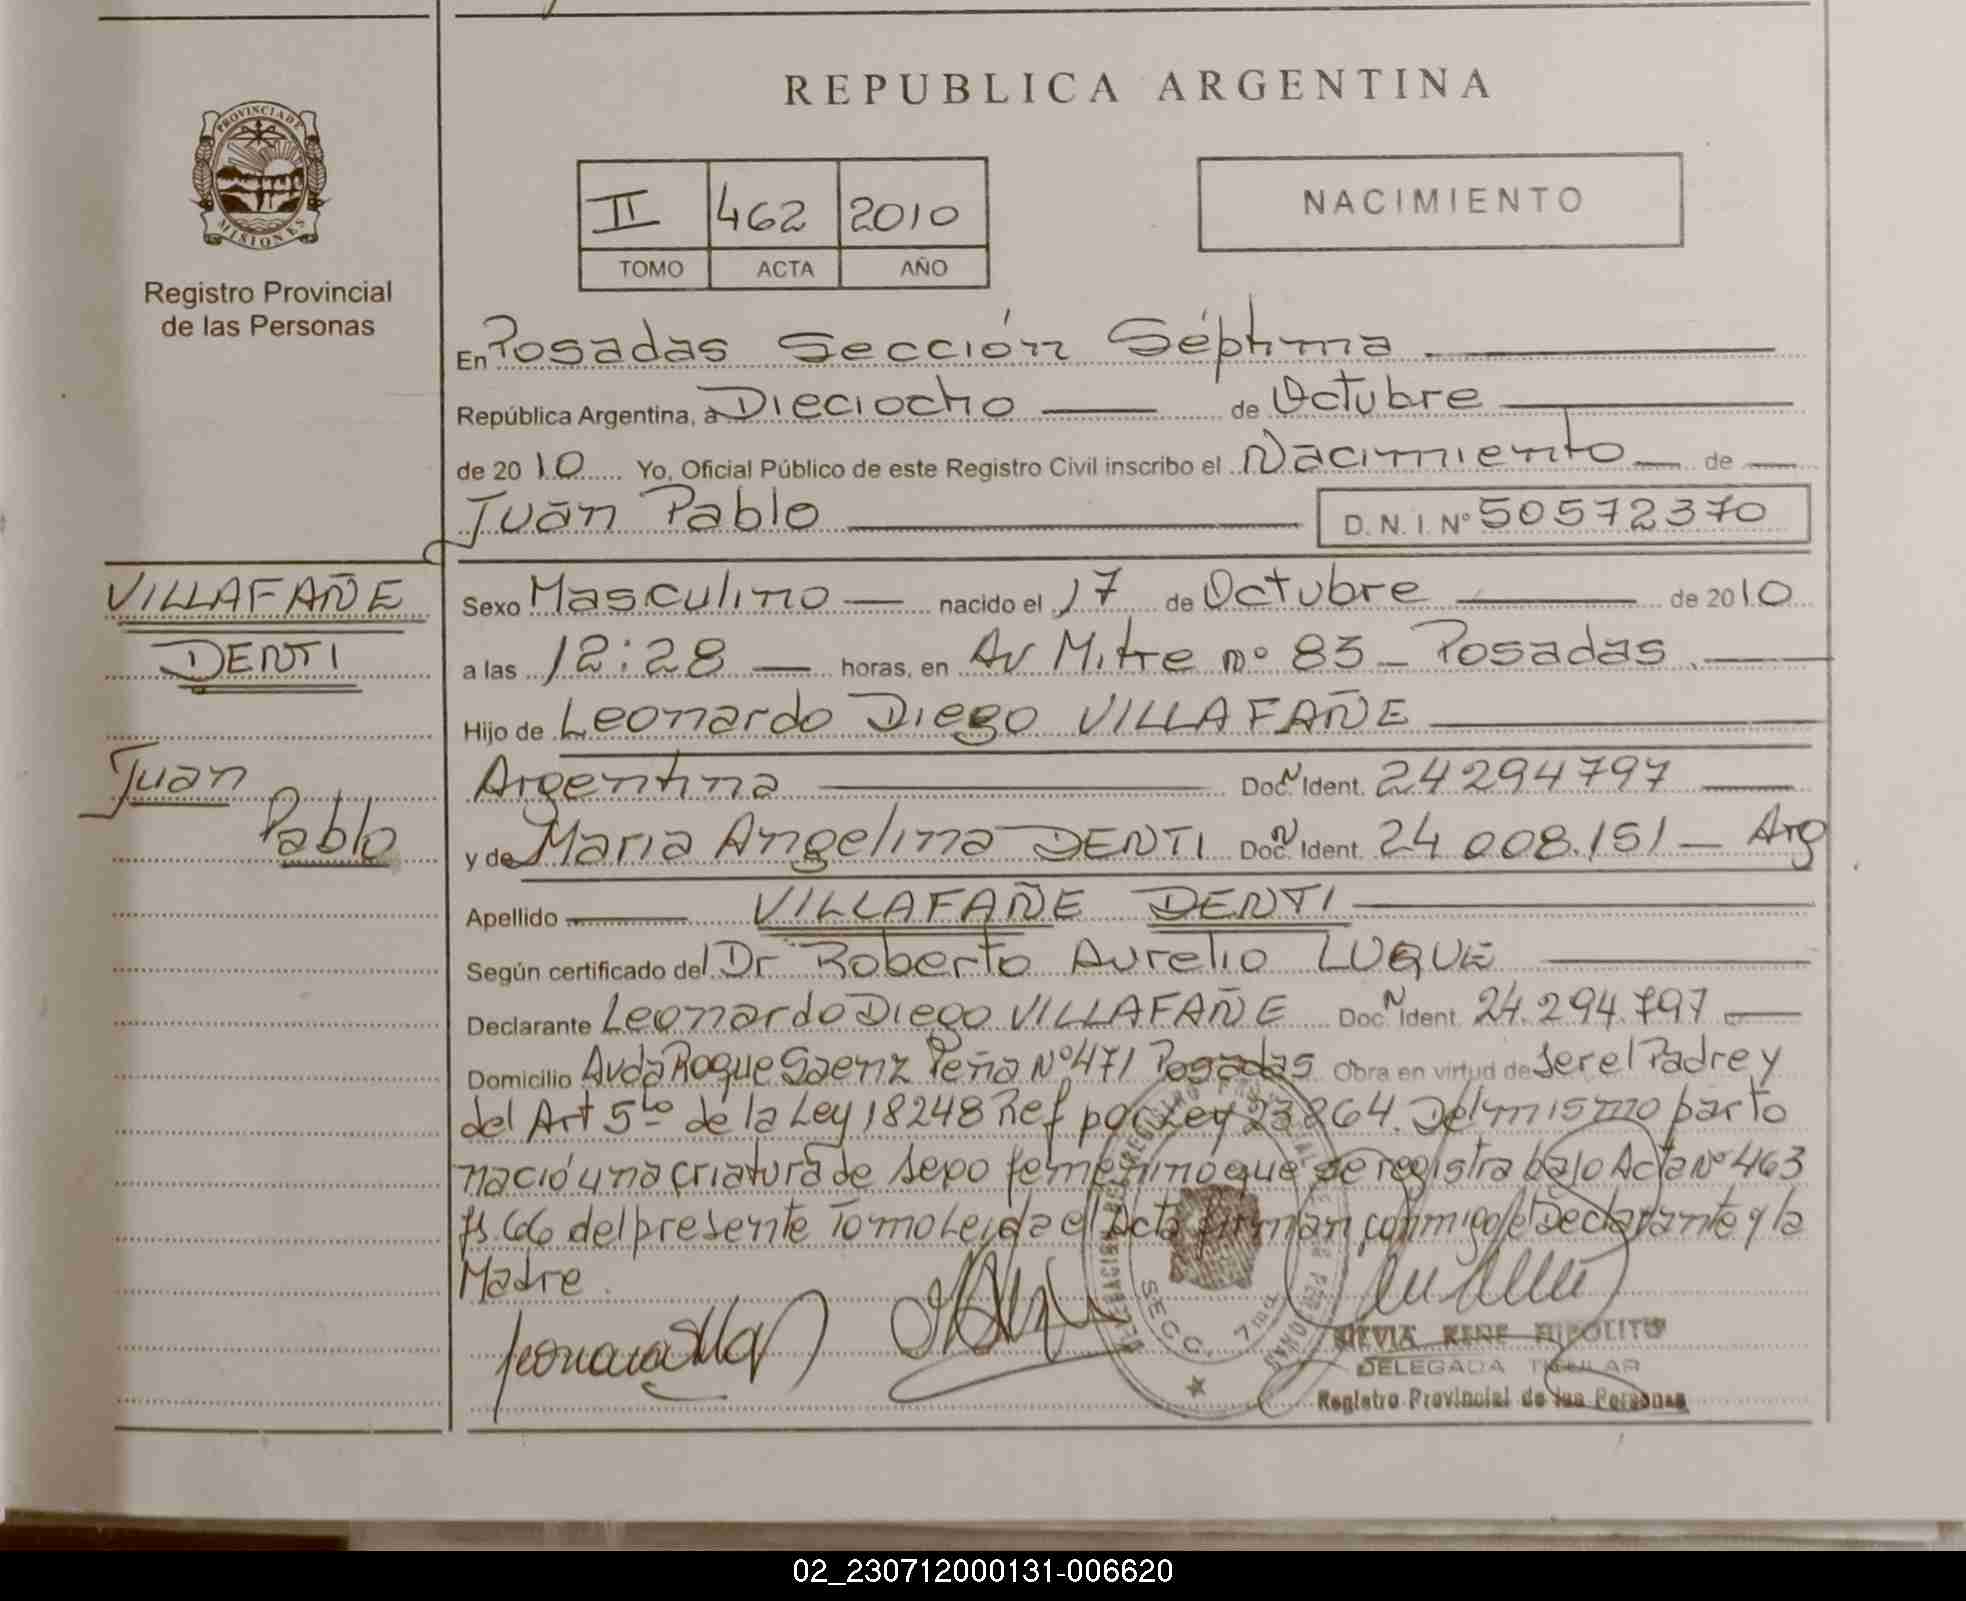 REPUBLICA ARGENTINA
PROVINCIA DE
MISIONES
Registro Provincial
de las Personas
II 462 2010
TOMO ACTA AÑO
NACIMIENTO
En Posadas Sección Séptima
República Argentina, a Dieciocho de Octubre
de 2010 Yo, Oficial Público de este Registro Civil inscribo el Nacimiento de
Juan Pablo D. N. I. Nº 50572370
VILLAFAÑE
DENTI
Juan
Pablo
Sexo Masculino nacido el 17 de Octubre de 2010
a las 12:28 horas, en Av Mitre nº 83 - Posadas
Hijo de Leonardo Diego VILLAFAÑE
Argentina Doc. N Ident. 24294797
y de Maria Angelina DENTI Doc. N Ident. 24 008.151 - Arg
Apellido VILLAFAÑE DENTI
Según certificado del Dr Roberto Aurelio LUQUE
Declarante Leonardo Diego VILLAFAÑE Doc. N Ident. 24.294.797
Domicilio Avda Roque Saenz Peña Nº 471 Posadas Obra en virtud de ser el Padre y
del Art 5to de la Ley 18248 Ref por Ley 23264. Del mismo parto
nació una criatura de sexo femenino que se registra bajo Acta Nº 463
fs. 66 del presente Tomo Leida el Acta firman conmigo el Declarante y la
Madre.
SECC. 7ma
SILVIA RENE HIPOLITO
DELEGADA TITULAR
Registro Provincial de las Personas
02_230712000131-006620